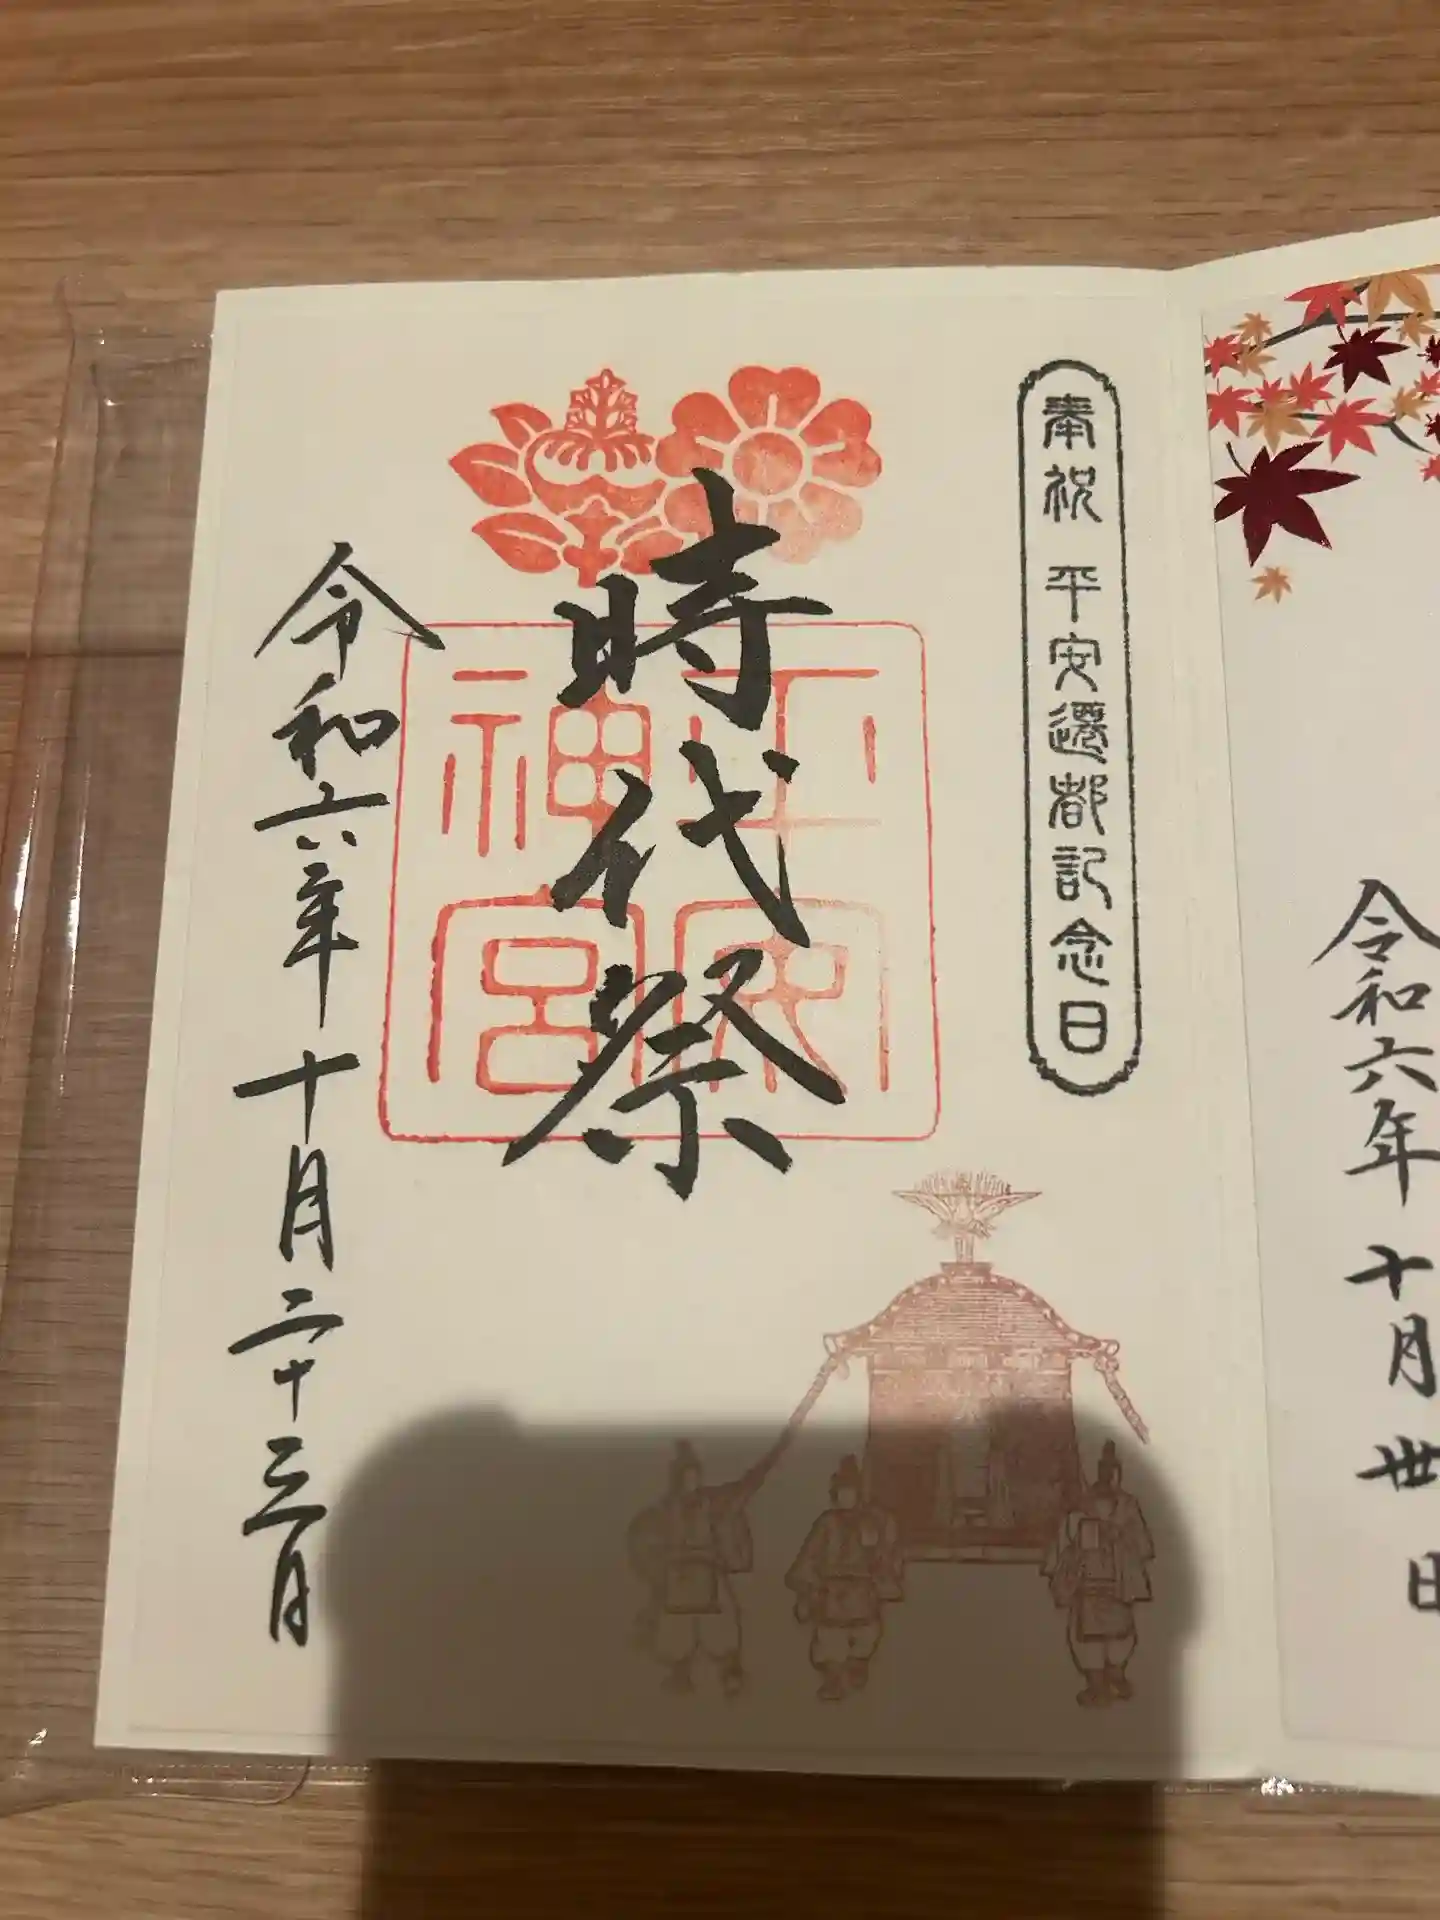 奉祝 平安遷都記念日
時代祭
平安
神宮
令和六年十月二十三日
令和六年十月丗日